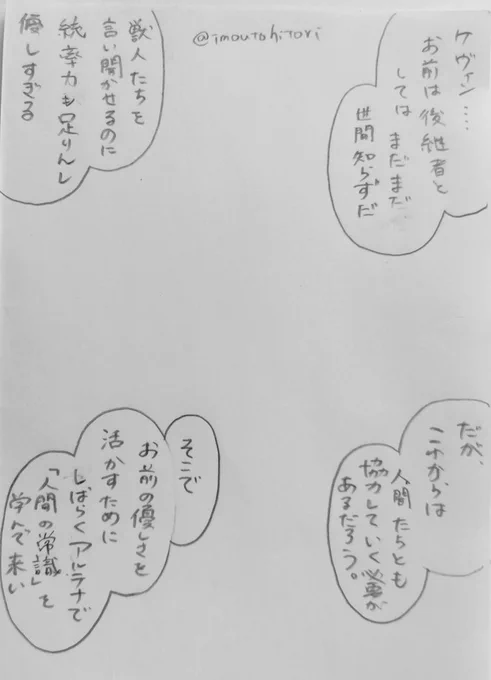 @imoutohitori
ケヴィン…
お前は後継者と
しては まだまだ
世間知らずだ
獣人たちを
言い聞かせるのに
統率力も足りんし
優しすぎる
だが、
これからは
人間たちとも
協力していく必要が
あるだろう。
そこで
お前の優しさを
活かすために
しばらくアルテナで
「人間の常識」を
学んで来い